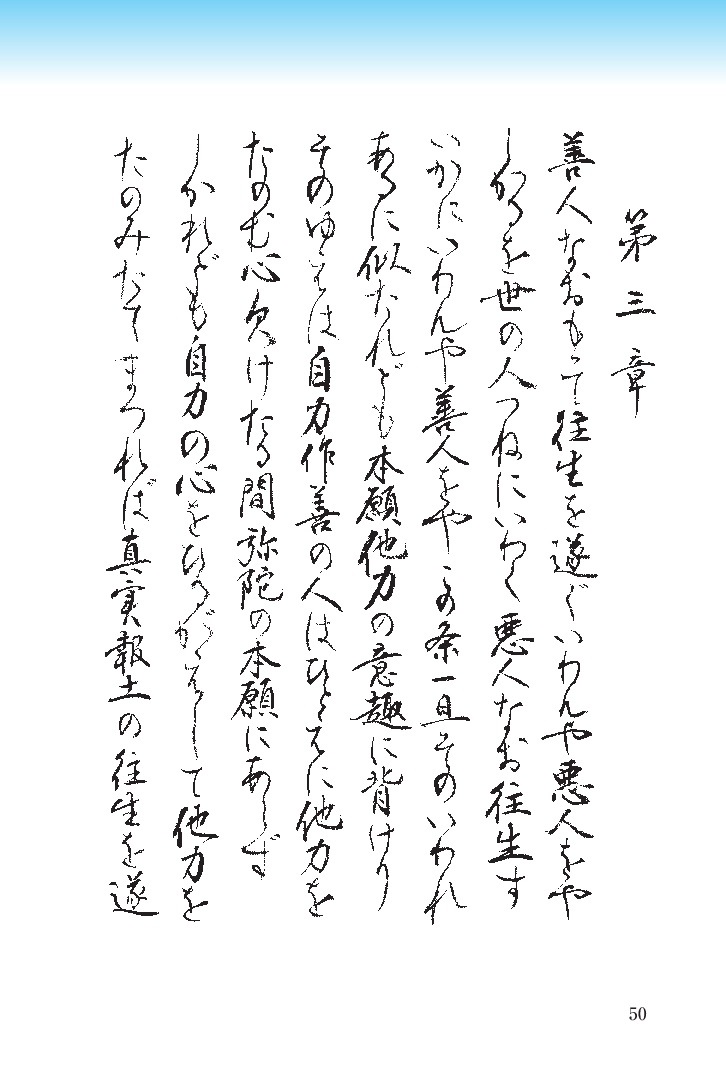 第三章
善人なおもて往生を遂ぐいわんや悪人をや
しかるを世の人つねにいわく悪人なお往生す
いかにいわんや善人をやこの条一旦そのいわれ
あるに似たれども本願他力の意趣に背けり
そのゆえは自力作善の人はひとえに他力を
たのむ心欠けたる間弥陀の本願にあらず
しかれども自力の心をひるがえして他力を
たのみたてまつれば真実報土の往生を遂
50